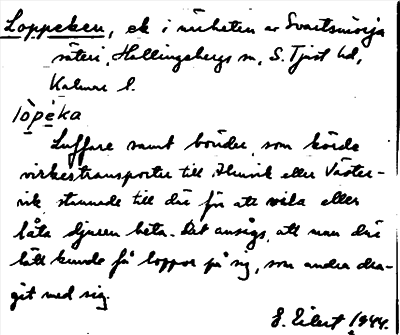 Loppeken, ek i närheten av Svartsmörja
säteri, Hallingebergs sn, S. Tjust hd,
Kalmar l.
lòpèka
Luffare samt bönder, som körde
virkestransporter till Almvik eller Väster-
vik stannade till där för att vila eller
låta djuren beta. Det ansågs, att man där
lätt kunde få loppor på sig, som andra dra-
git med sig.
G. Eilert 1944.